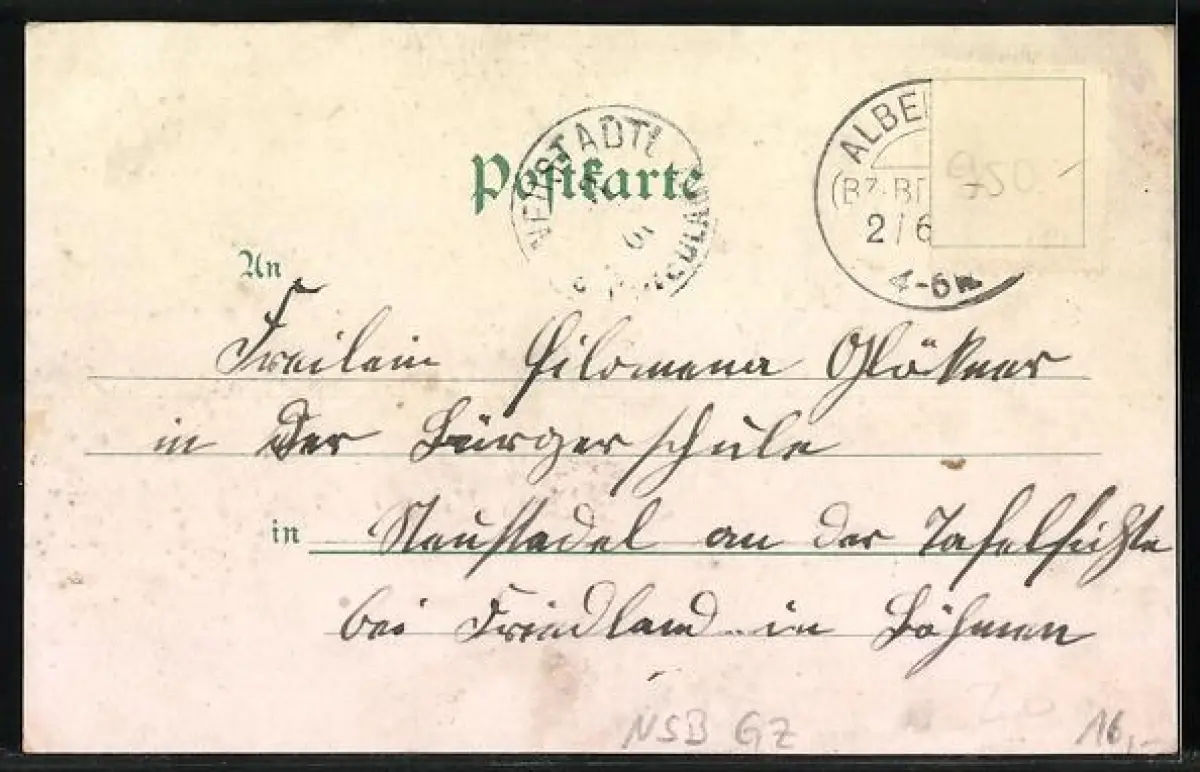 Postkarte
NEUSTADTL
ALBE
(BZ. 
2/6
4-6N.
950
An
Freilein Filomena Glökner
in der Bürgerschule
in Neustadel an der Tafelfichte
bei Friedland in Böhmen
NSB GZ
16,-